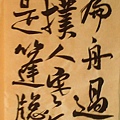 扁舟過
撲人寒
是篷窗